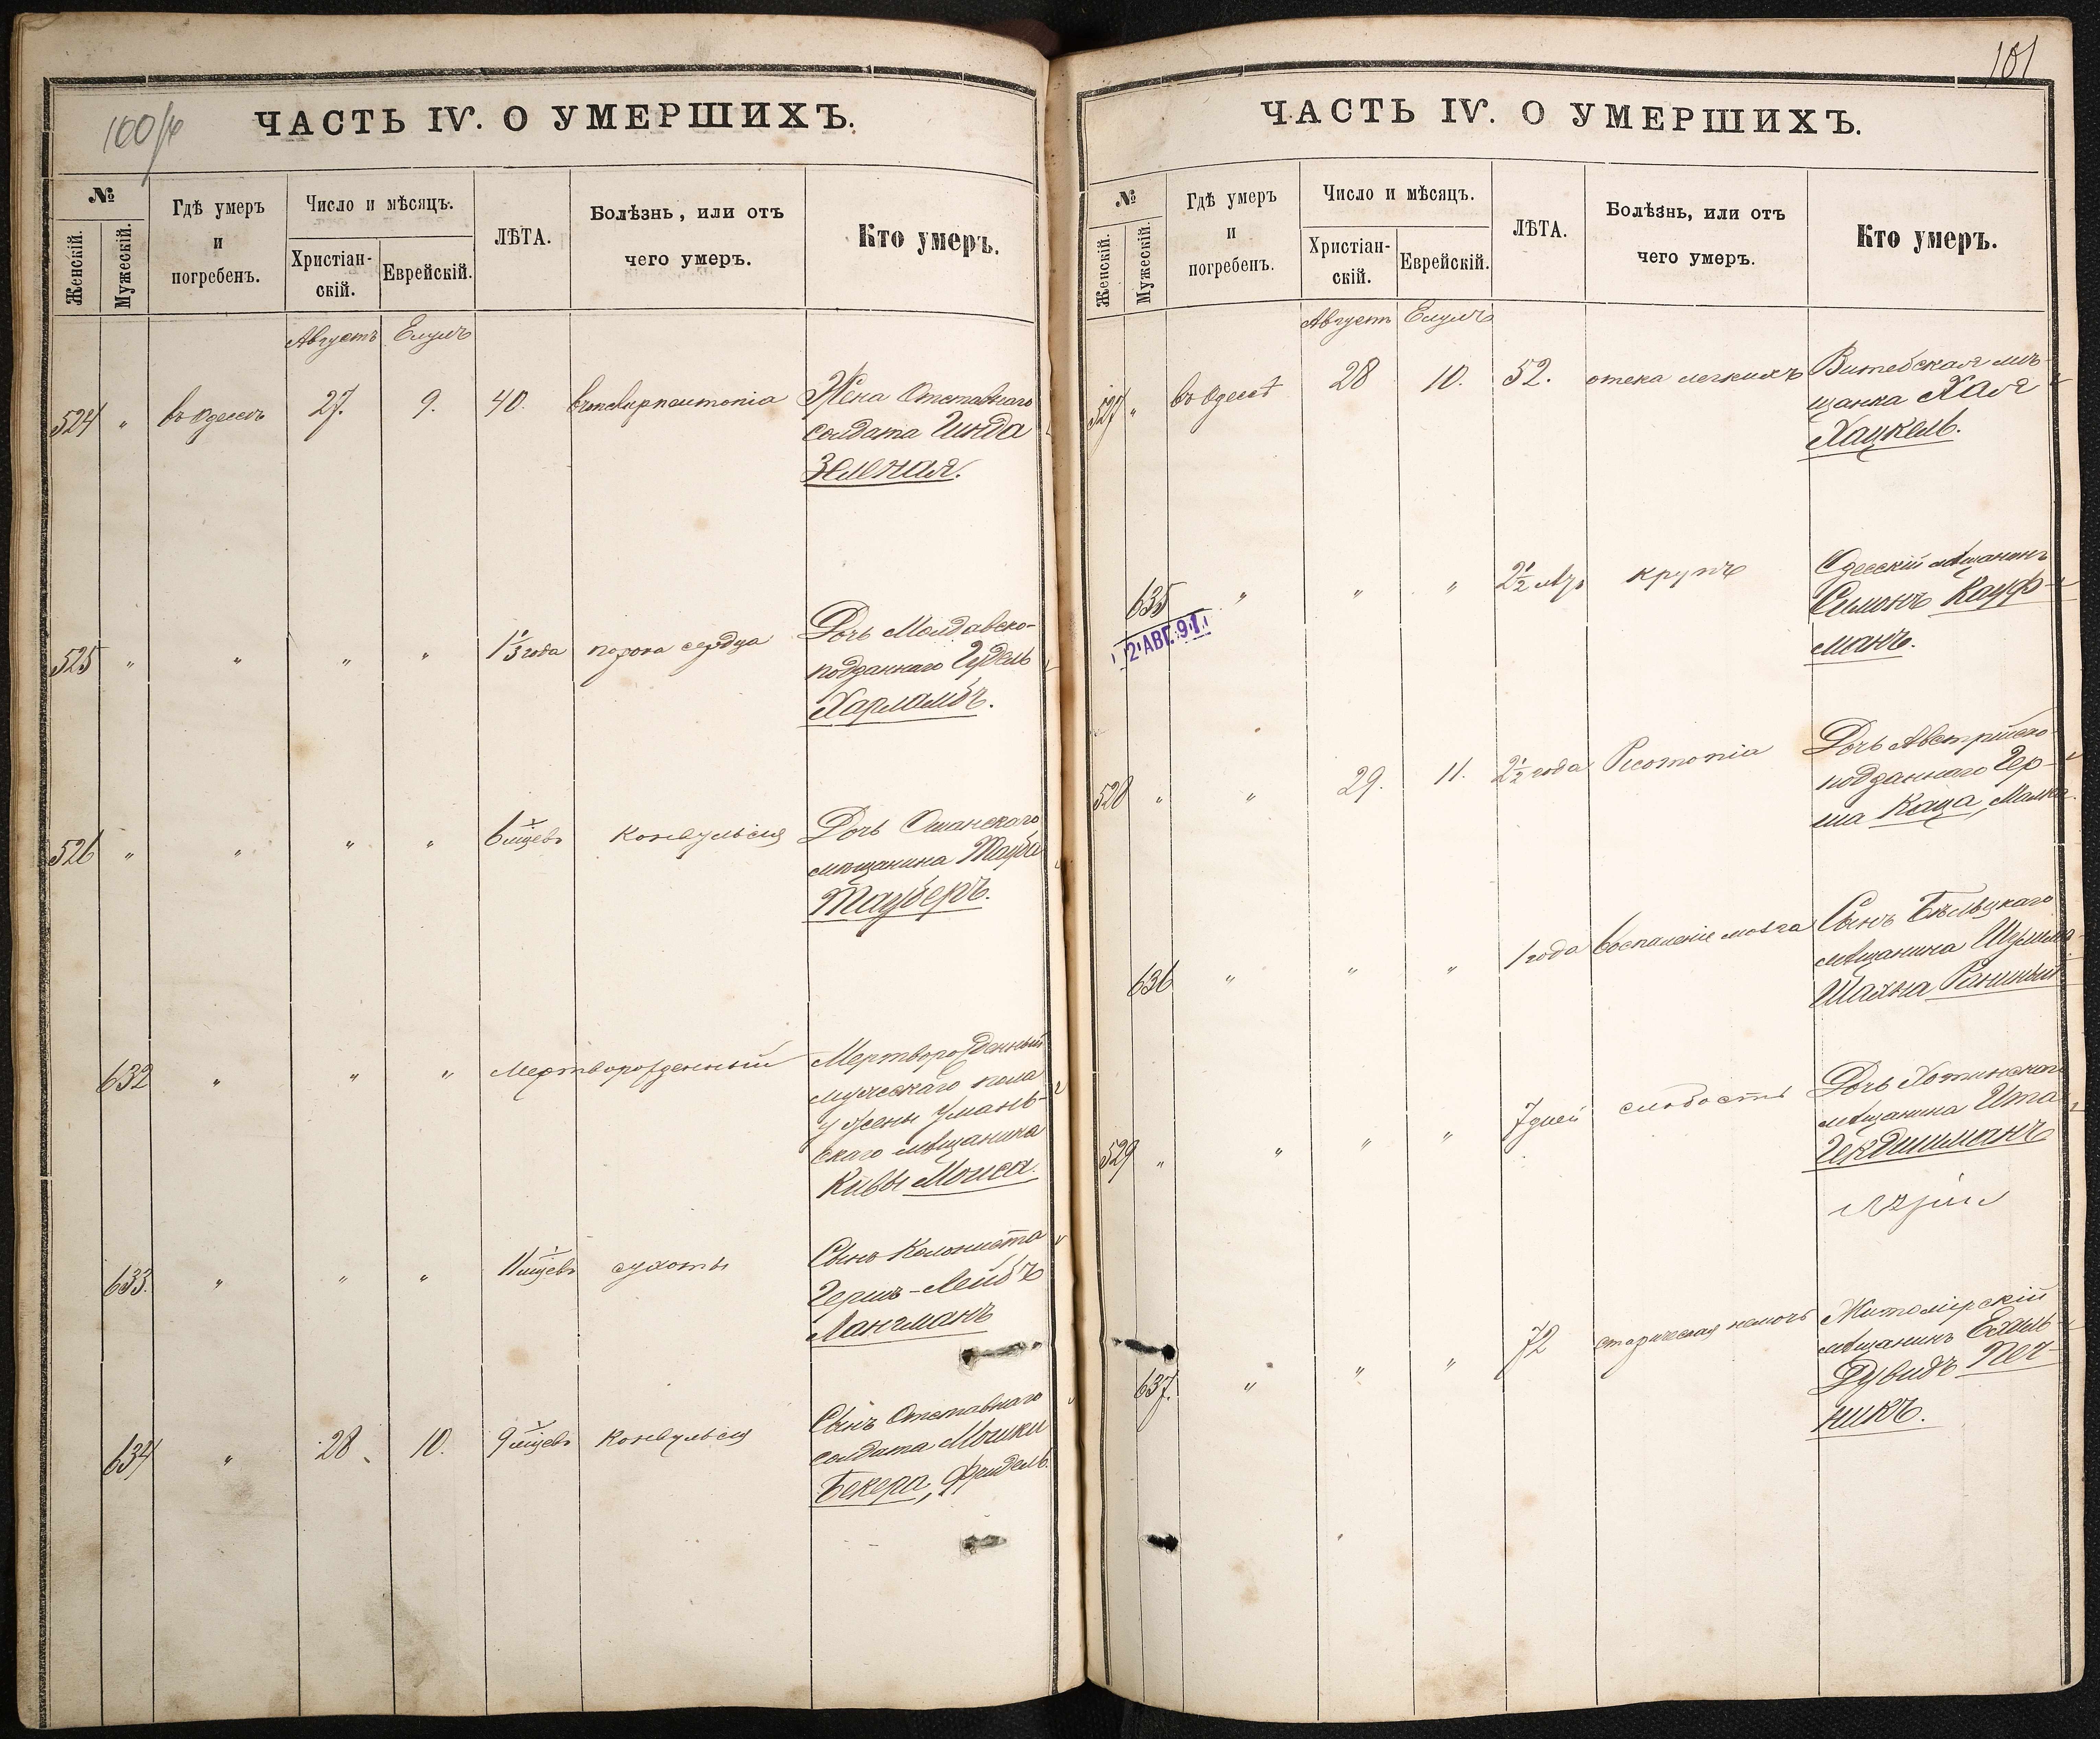 100/
ЧАСТЬ IV. О УМЕРШИХЪ.
№
Женскій.
Мужескій.
Гдѣ умеръ
и
погребенъ.
Число и мѣсяцъ.
Христіан-
скій.
Еврейскій.
ЛѢТА.
Болѣзнь, или отъ
чего умеръ.
Кто умеръ.
Августъ Елулъ
524 " въ Одессѣ 27. 9. 40. Жена Отставнаго
солдата Гинда
Зеленая.
525 " " " " 1 1/3 года порока сердца Дочь Молдавско-
подданнаго Гудель
Харламбъ.
526 " " " " 6 мѣсяцевъ конвульсія Дочь Оманскаго
мѣщанина Тауби
Тауберъ.
632 " " " Мертворожденный Мертворожденный
мужескаго пола
у жены Умань-
скаго мѣщанина
Кивы Моиса.
633. " " " 11 мѣсяцевъ сухоты Сынъ Колониста
Гершъ-Лейбъ
Лангманъ
634 " 28. 10. 9 мѣсяцевъ конвульсія Сынъ Отставнаго
солдата Мошки
Бекера, Фридель.
101
ЧАСТЬ IV. О УМЕРШИХЪ.
№
Женскій.
Мужескій.
Гдѣ умеръ
и
погребенъ.
Число и мѣсяцъ.
Христіан-
скій.
Еврейскій.
ЛѢТА.
Болѣзнь, или отъ
чего умеръ.
Кто умеръ.
Августъ Елулъ
527 " въ Одессѣ 28 10. 52. отека легкихъ Витебская мѣ-
щанка Хая
Хацкель.
635 " " " 2 1/2 крупъ Одесскій мѣщанинъ
Симонъ Кауф-
манъ.
2 АВГ. 91
528 " " 29. 11. 2 1/2 года Дочь Австрійско-
подданнаго Гер-
ша Каца, Малка.
636 " " " 1 года воспаленіе мозга Сынъ Бѣльцкаго
мѣщанина
529 " " " " 7 дней слабость Дочь Хотинскаго
мѣщанина Ита
637. " " " 72 старческая немочь Житомірскій
мѣщанинъ Ехиль-
Дувидъ Печ-
никъ.